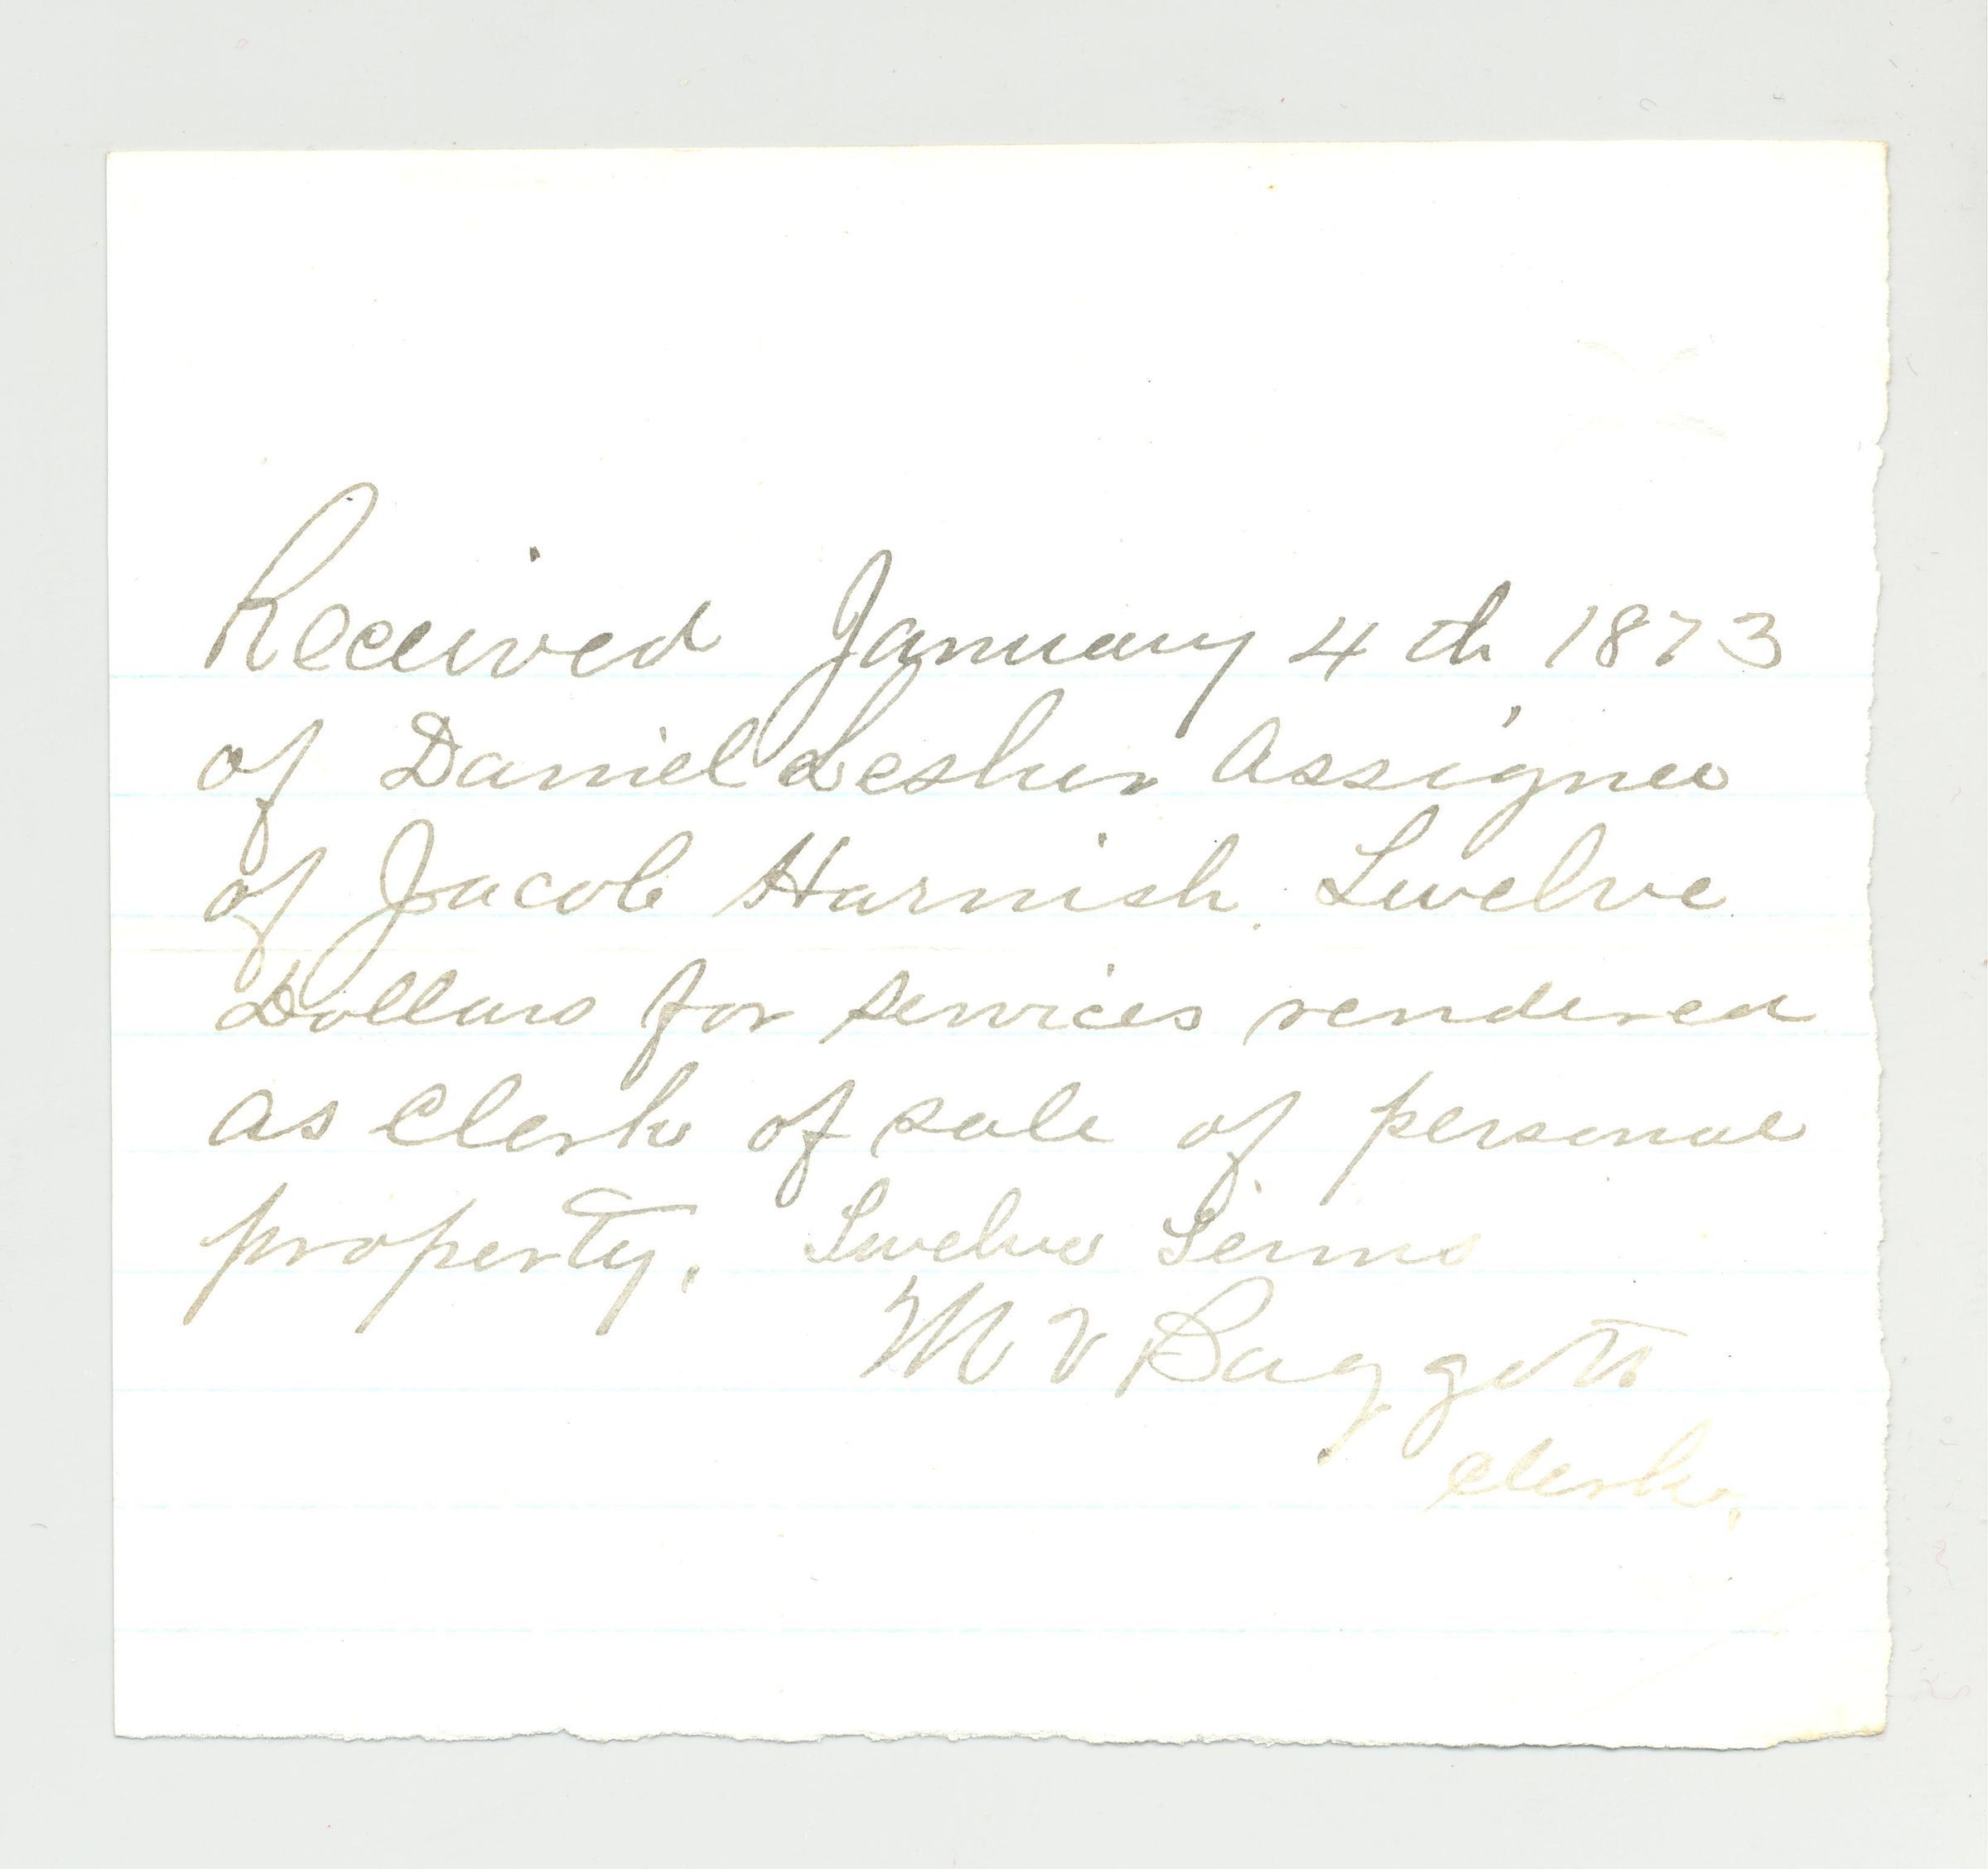 Received January 4th 1873
of Daniel Lesher Assignee
of Jacob Harnish. Twelve
Dollars for services rendered
as Clerk of sale of personal
property. Twelve
M V Baggett
Clerk.